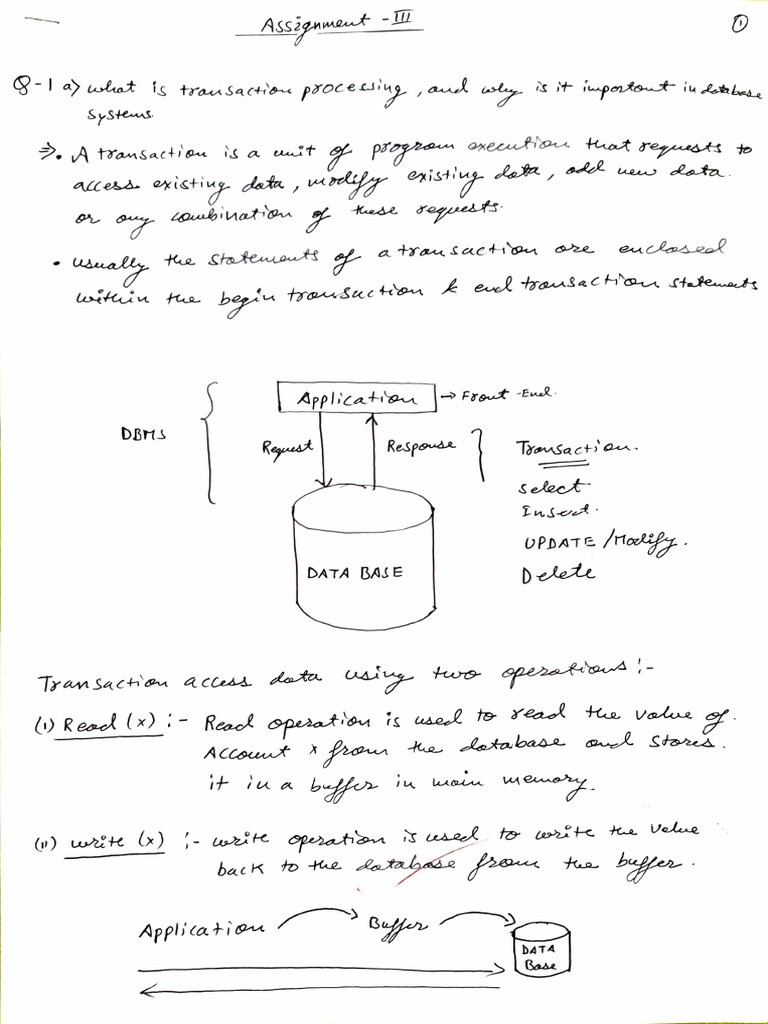 Assignment - III
1
Q-1 a) what is transaction processing, and why is it important in database
systems.
⇒ • A transaction is a unit of program execution that requests to
access existing data, modify existing data, add new data.
or any combination of these requests.
• usually the statements of a transaction are enclosed
within the begin transaction & end transaction statements
Application → Front-End.
DBMS
Request
Response
Transaction.
Select.
Insert.
UPDATE / Modify.
Delete
DATA BASE
Transaction access data using two operations :-
(i) Read (x) :- Read operation is used to read the value of.
Account x from the database and stores.
it in a buffer in main memory.
(ii) write (x) :- write operation is used to write the value
back to the database from the buffer.
Application
Buffer
DATA
Base